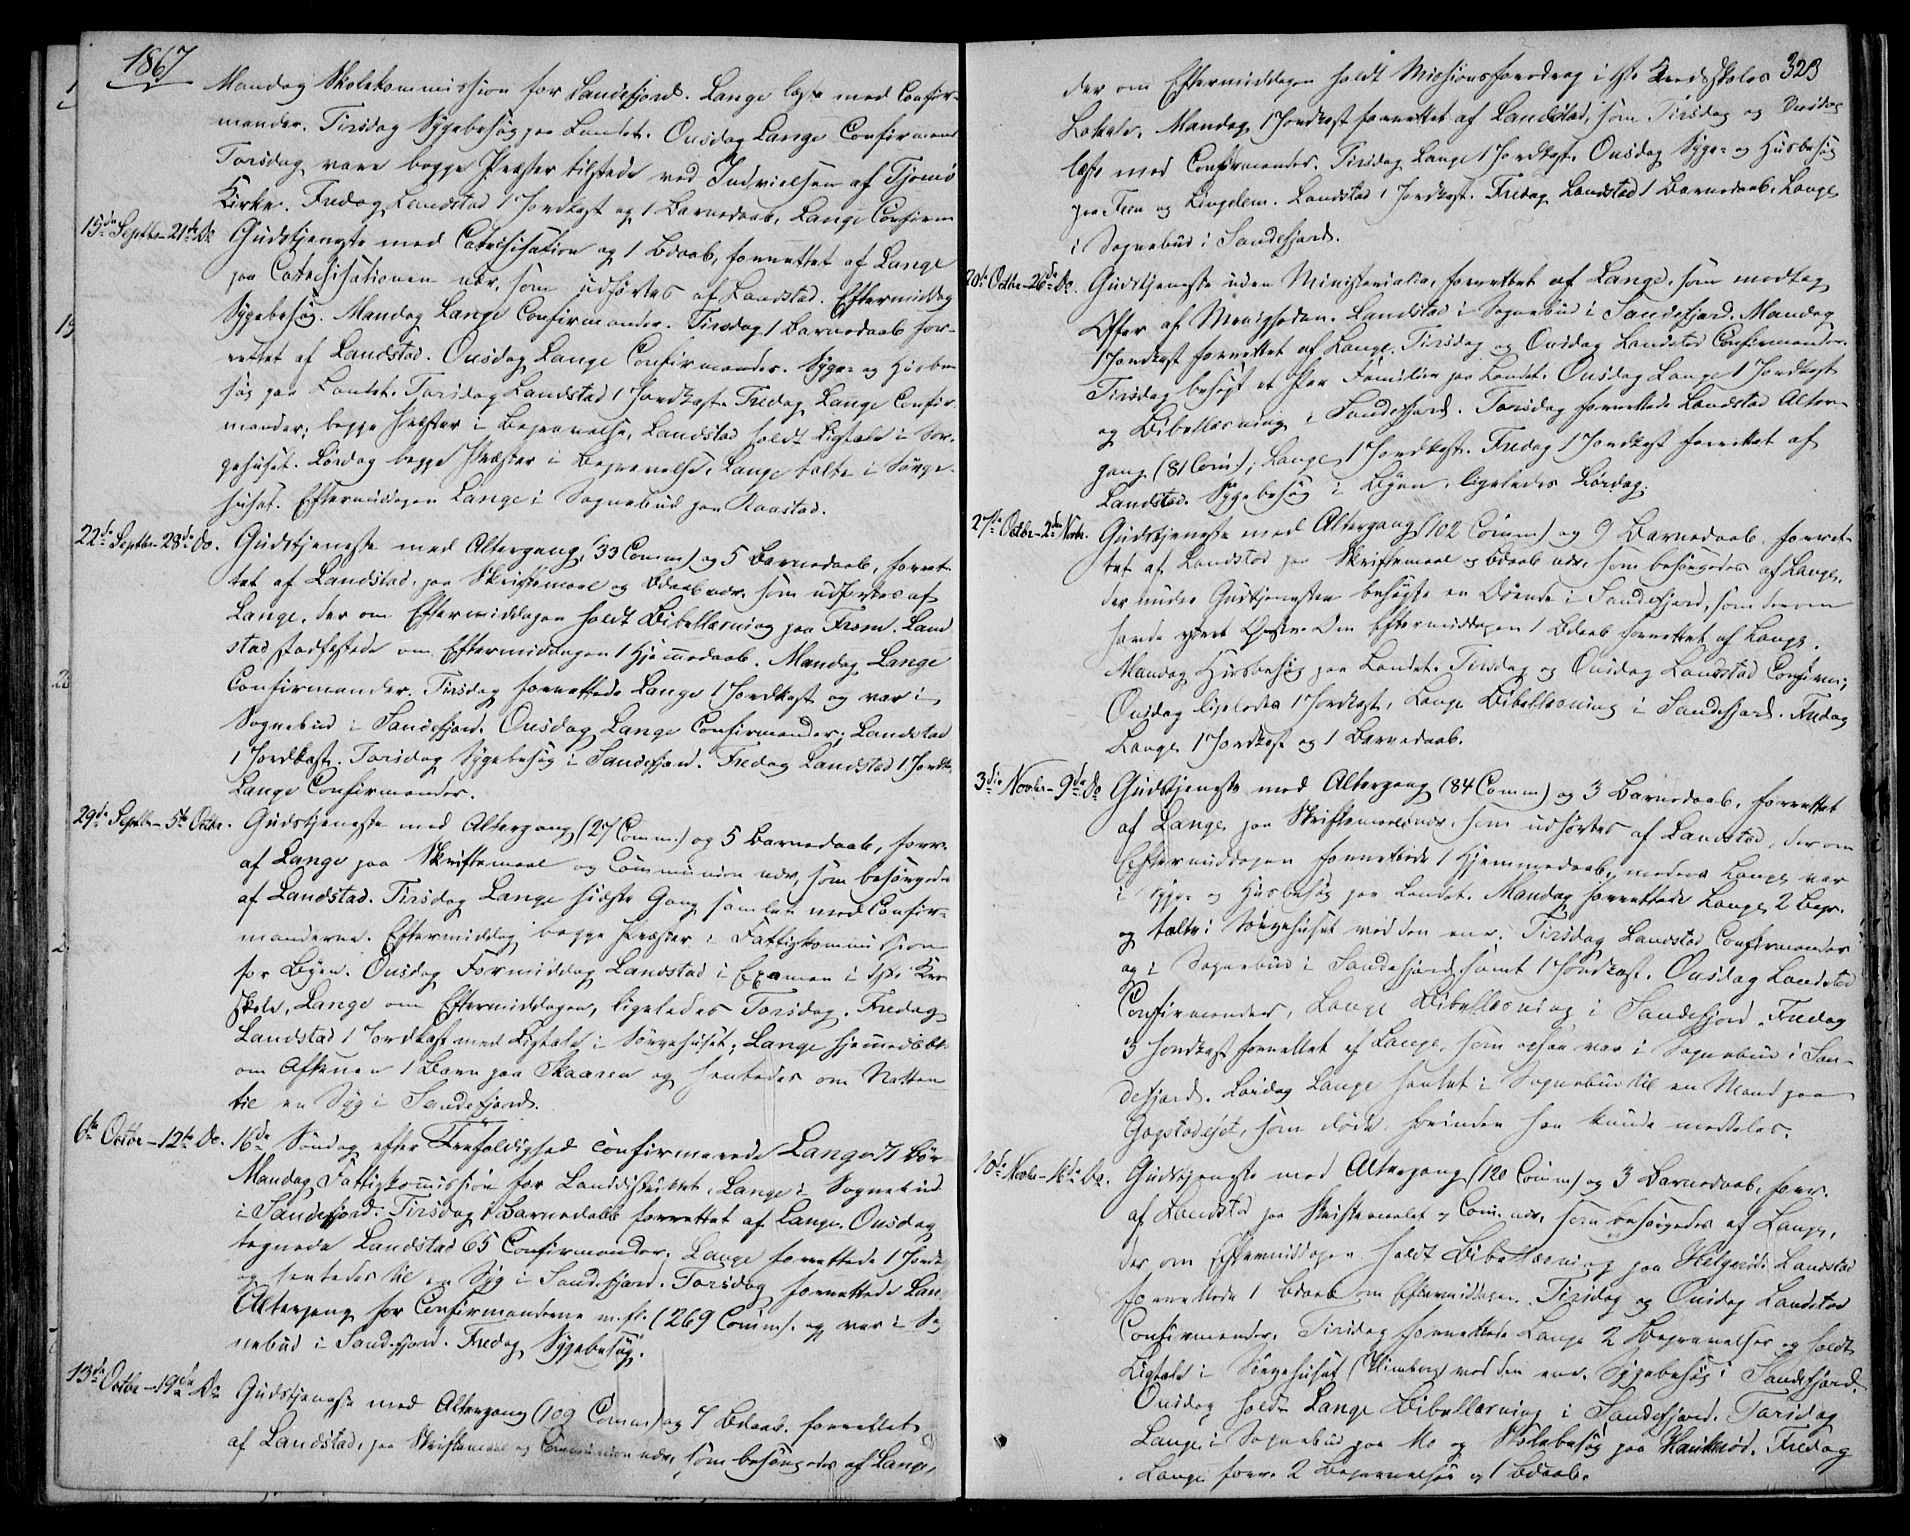 1867
Mandag Skolekommission for Sandefjord. Lange læste med Confir-
mander. Tirsdag Sygebesøg paa Landet. Onsdag Lange Confirmand
Torsdag vare begge Præster tilstede ved Indvielsen af Tjømø
Kirke. Fredag Landstad 1 Jordkast og 1 Barnedaab, Lange Confirm
15de Septbr - 21de Do Gudstjeneste med Catechisation og 1 Bdaab, forrettet af Lange
paa Catechisationen nær, som udførtes af Landstad. Eftermiddag
Sygebesøg. Mandag Lange Confirmander. Tirsdag 1 Barnedaab for-
rettet af Landstad. Onsdag Lange Confirmander. Syge- og Husbe-
søg paa Landet. Torsdag Landstad 1 Jordkast. Fredag Lange Confir-
mander; begge Præster i Begravelse, Landstad holdt Ligtale i Sør-
gehuset. Lørdag begge Præster i Begravelse, Lange talte i Sørge-
huset. Eftermiddagen Lange i Sognebud paa Raastad.
22de Septbr - 28de Do. Gudstjeneste med Altergang (33 Comm) og 5 Barnedaab, forret-
tet af Landstad, paa Skriftemaal og Bdaab nær, som udførtes af
Lange, der om Eftermiddagen holdt Bibellæsning paa Fræm. Land
stad stadfæstede om Eftermiddagen 1 Hjemmedaab. Mandag Lange
Confirmander. Tirsdag forrettede Lange 1 Jordkast og var i
Sognebud i Sandefjord. Onsdag Lange Confirmander; Landstad
1 Jordkast. Torsdag Sygebesøg i Sandefjord. Fredag Landstad 1 Jordk.
Lange Confirmander.
29de Septbr - 5te Octbr. Gudstjeneste med Altergang (27 Comm.) og 5 Barnedaab, forr.
af Lange paa Skriftemaal og Communion nær, som besørgedes
af Landstad. Tirsdag Lange sidste Gang samlet med Confir-
manderne. Eftermiddag begge Præster i Fattigkommission
for Byen. Onsdag Formiddag Landstad i Examen i 1ste Kreds
skole, Lange om Eftermiddagen, ligeledes Torsdag. Fredag
Landstad 1 Jordkast med Ligtale i Sørgehuset; Lange hjemmedøbte
om Aftenen 1 Barn paa Skaaren og hentedes om Natten
til en Syg i Sandefjord.
6te Octbr - 12te Do. 16de Søndag efter Trefoldighed confirmerede Lange 71 Bør
Mandag Fattigkommission for Landdistriktet. Lange i Sognebud
i Sandefjord. Tirsdag 1 Barnedaab forrettet af Lange. Onsdag
tegnede Landstad 65 Confirmander. Lange forrettede 1 Jordk
og hentedes til en Syg i Sandefjord. Torsdag forrettede Lan
Altergang for Confirmanderne m. fl. (269 Comm). og var i Sog
nebud i Sandefjord. Fredag Sygebesøg.
13de Octbr - 19de Do Gudstjeneste med Altergang (109 Comm) og 7 Bdaab, forrettet
af Landstad, paa Skriftemaal og Communion nær, som besørgedes af Lange,
323
der om Eftermiddagen holdt Missionsforedrag i 1ste Kredsskoles
Lokale. Mandag 1 Jordkast forrettet af Landstad, som Tirsdag og Onsdag
læste med Confirmander. Tirsdag Lange 1 Jordkast. Onsdag Syge- og Husbesøg
paa Teen og Lingelem. Landstad 1 Jordkast. Fredag Landstad 1 Barnedaab, Lange
i Sognebud i Sandefjord.
20de Octbr - 26de Do. Gudstjeneste uden Ministerialia, forrettet af Lange, som modtog
Offer af Menigheden. Landstad i Sognebud i Sandefjord. Mandag
1 Jordkast forrettet af Lange. Tirsdag og Onsdag Landstad Confirmander.
Tirsdag besøgt et Par Familier paa Landet. Onsdag Lange 1 Jordkast
og Bibellæsning i Sandefjord. Torsdag forrettede Landstad Alter-
gang (81 Com), Lange 1 Jordkast. Fredag 1 Jordkast forrettet af
Landstad. Sygebesøg i Byen, ligeledes Lørdag.
27de Octbr - 2den Novbr. Gudstjeneste med Altergang (102 Comm) og 9 Barnedaab, forret-
tet af Landstad paa Skriftemaal og Bdaab nær, som besørgedes af Lange,
der under Gudstjenesten besøgte en Døende i Sandefjord, som derom
havde ytret Ønske. Om Eftermiddagen 1 Bdaab forrettet af Lange.
Mandag Husbesøg paa Landet. Tirsdag og Onsdag Landstad Confirm;
Onsdag ligeledes 1 Jordkast, Lange Bibellæsning i Sandefjord. Fredag
Lange 1 Jordkast og 1 Barnedaab.
3die Novbr - 9de Do Gudstjeneste med Altergang (84 Comm) og 3 Barnedaab, forrettet
af Lange paa Skriftemaal nær, som udførtes af Landstad, der om
Eftermiddagen forrettede 1 Hjemmedaab, medens Lange var
i Syge- og Husbesøg paa Landet. Mandag forrettede Lange 2 Begr.
og talte i Sørgehuset ved den ene. Tirsdag Landstad Confirmander
og i Sognebud i Sandefjord samt 1 Jordkast. Onsdag Landstad
Confirmander, Lange Bibellæsning i Sandefjord. Fredag
3 Jordkast forrettet af Lange, som ogsaa var i Sognebud i San-
defjord. Lørdag Lange hentet i Sognebud til en Mand paa
Gogstadejet, som døde, førinden han kunde meddeles.
10de Novbr - 16de Do. Gudstjeneste med Altergang (120 Comm) og 3 Barnedaab, forr.
af Landstad paa Skriftemaalet og Com. nær, som besørgedes af Lange,
der om Eftermiddagen holdt Bibellæsning paa Helgerød. Landstad
forrettede 1 Bdaab om Eftermiddagen. Tirsdag og Onsdag Landstad
Confirmander. Tirsdag forrettede Lange 2 Begravelser og holdt
Ligtale i Sørgehuset (Himberg) ved den ene. Sygebesøg i Sandefjord.
Onsdag holdt Lange Bibellæsning i Sandefjord. Torsdag
Lange i Sognebud paa Mo og Skolebesøg paa Haukerød. Fredag
Lange forr. 2 Begravelser og 1 Bdaab.